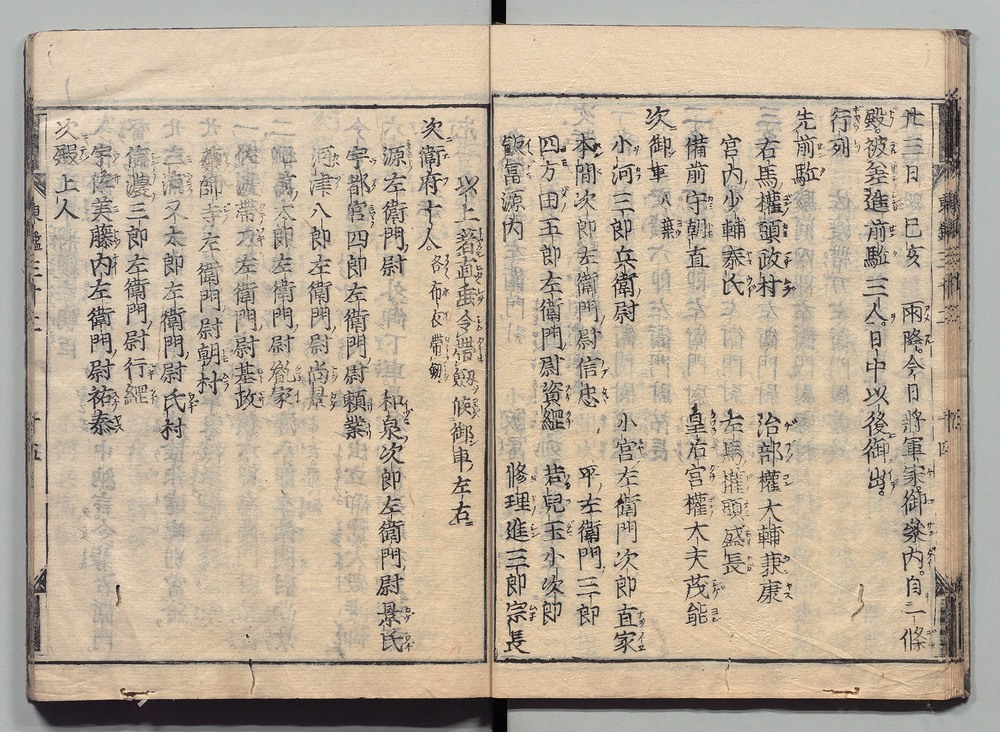 廿三日 己亥 雨降。今日將軍家御參内。自二條
殿被進前駈三人。日中以後御出。
行列
先前駈
右馬權頭政村 治部權大輔兼康
宮内少輔泰氏 左馬權頭盛長
備前守朝直 皇后宮權大夫茂能
次御車 八葉
小河三郎兵衛尉 小宮左衛門次郎直家
本間次郎左衛門尉信忠 平左衛門三郎
四方田五郎左衛門尉資經 若兒玉小次郎
飯冨源内 修理進三郎宗長
以上著直垂令帶劔候御車左右
次衛府十人 各布衣帶劔
源左衛門尉 和泉次郎左衛門尉景氏
宇都宮四郎左衛門尉頼業
河津八郎左衛門尉尚景
太郎左衛門尉
帶刀左衛門尉基政
藥師寺左衛門尉朝村
又太郎左衛門尉氏村
信濃三郎左衛門尉行綱
宇佐美藤内左衛門尉祐泰
次殿上人